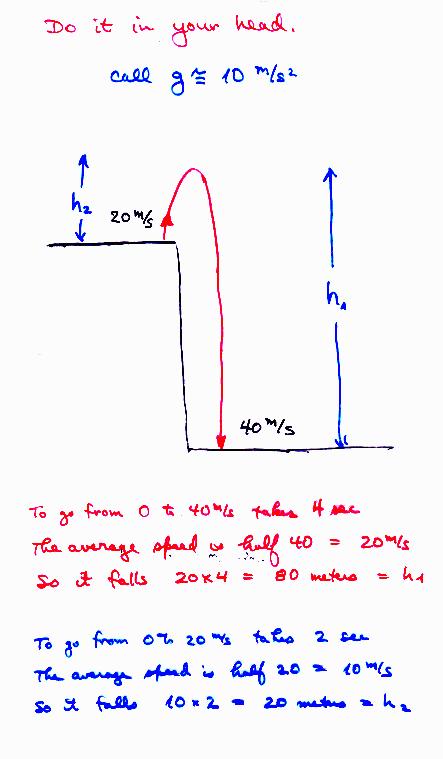 Do it in your head.
call g ≅ 10 m/s²
h₂
20 m/s
h₁
40 m/s
To go from 0 to 40 m/s takes 4 sec
The average speed is half 40 = 20 m/s
So it falls 20 x 4 = 80 meters = h₁
To go from 0 to 20 m/s takes 2 sec
The average speed is half 20 = 10 m/s
So it falls 10 x 2 = 20 meters = h₂